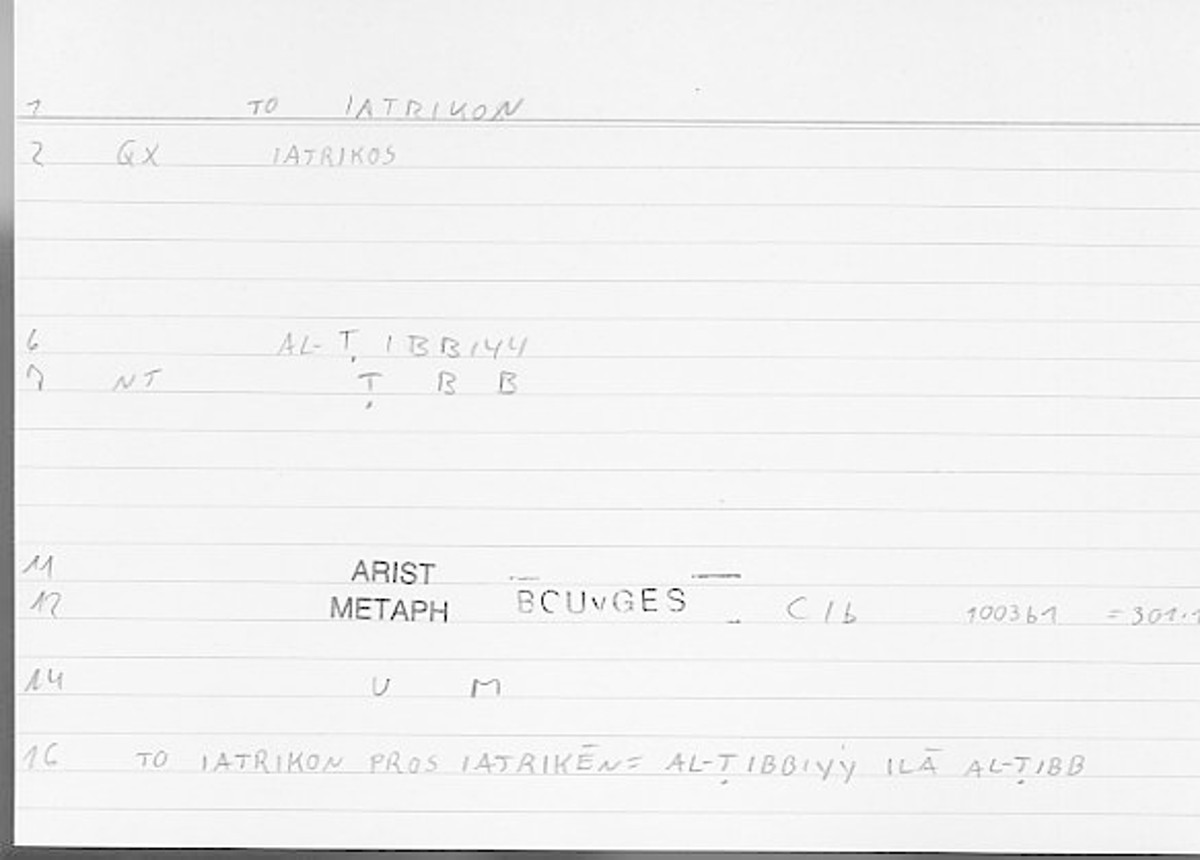 1 TO IATRIKON
2 GX IATRIKOS
6 AL-ṬIBBIYY
7 NT Ṭ B B
11 ARIST
12 METAPH BCUvGES C 1b 1003b1 = 301.1
14 U M
16 TO IATRIKON PROS IATRIKĒN = AL-ṬIBBIYY ILĀ AL-ṬIBB